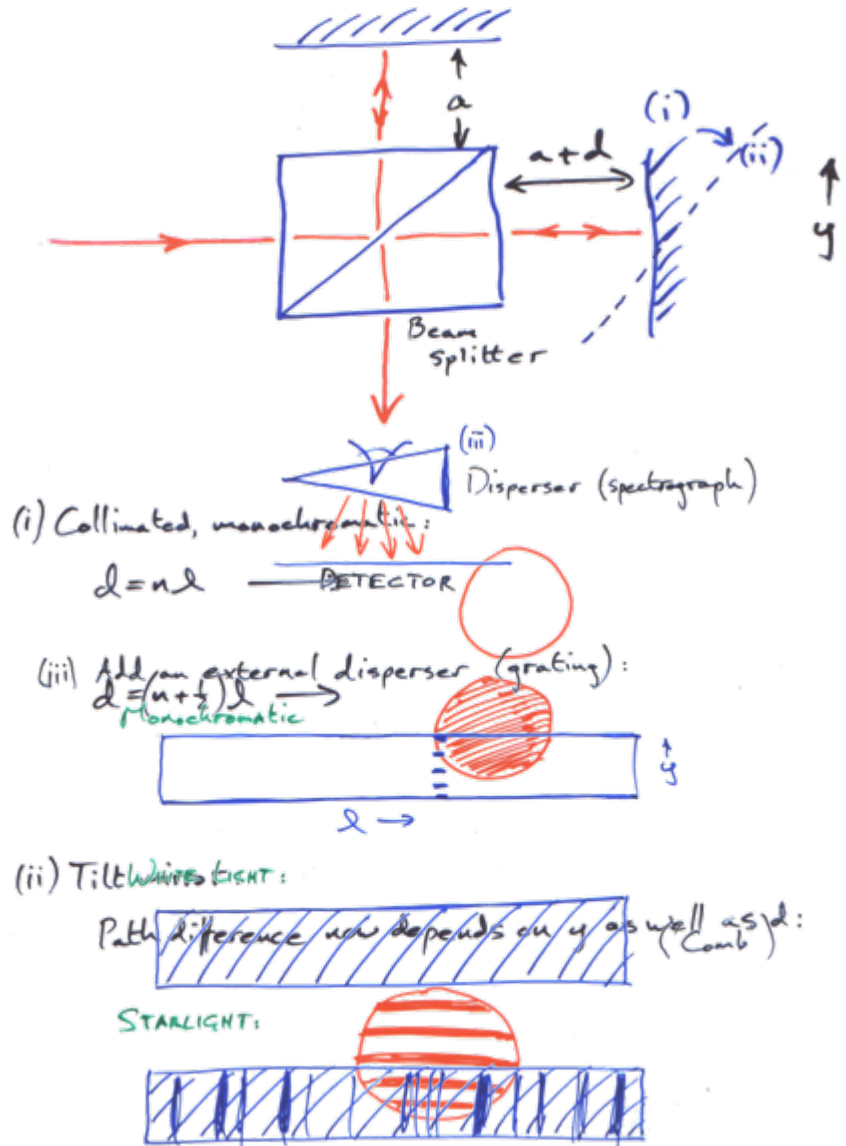 a
(i)
(ii)
a + d
y
Beam
splitter
(iii)
Disperser (spectrograph)
(i) Collimated, monochromatic:
d = nl
DETECTOR
(iii) Add an external disperser (grating):
d = (n + ½) l →
Monochromatic
y
l →
(ii) Tilt
WHITE LIGHT:
Path difference now depends on y as well as d:
(Comb)
STARLIGHT: